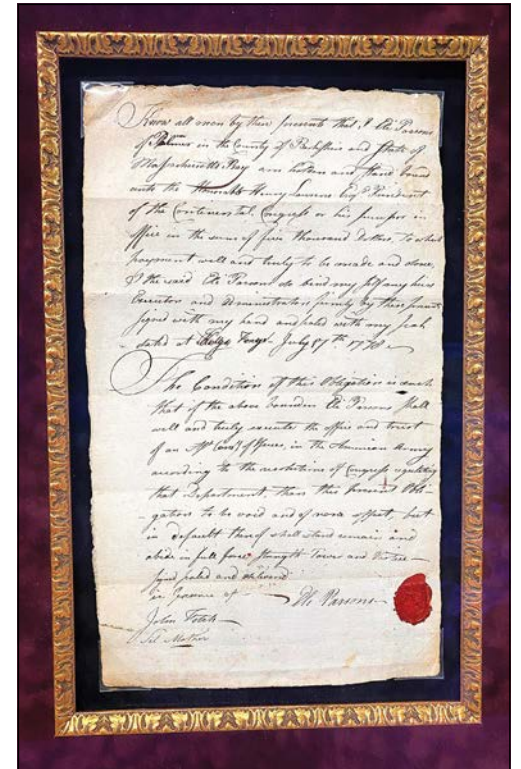 Know all men by these presents that I Eli Parsons
of in the County of and State of
Massachusetts Bay am holden and stand bound
unto the Honorable Henry Laurens Esqr. President
of the Continental Congress or his successor in
office in the sum of five thousand Dollars, To which
payment well and truly to be made and done,
I the said Eli Parsons do bind my self my heirs
Executors and Administrators firmly by these presents
signed with my hand and sealed with my seal
dated at July th 1778
The Condition of this Obligation is such
that if the above bounden Eli Parsons shall
well and truly execute the office and trust
of an of in the American Army
according to the resolutions of Congress regulating
that Department, then this present Obli-
-gation to be void and of none effect, but
in default thereof shall stand remain and
abide in full force strength Power and Vertue
signed sealed and delivered
in presence of Eli Parsons
John